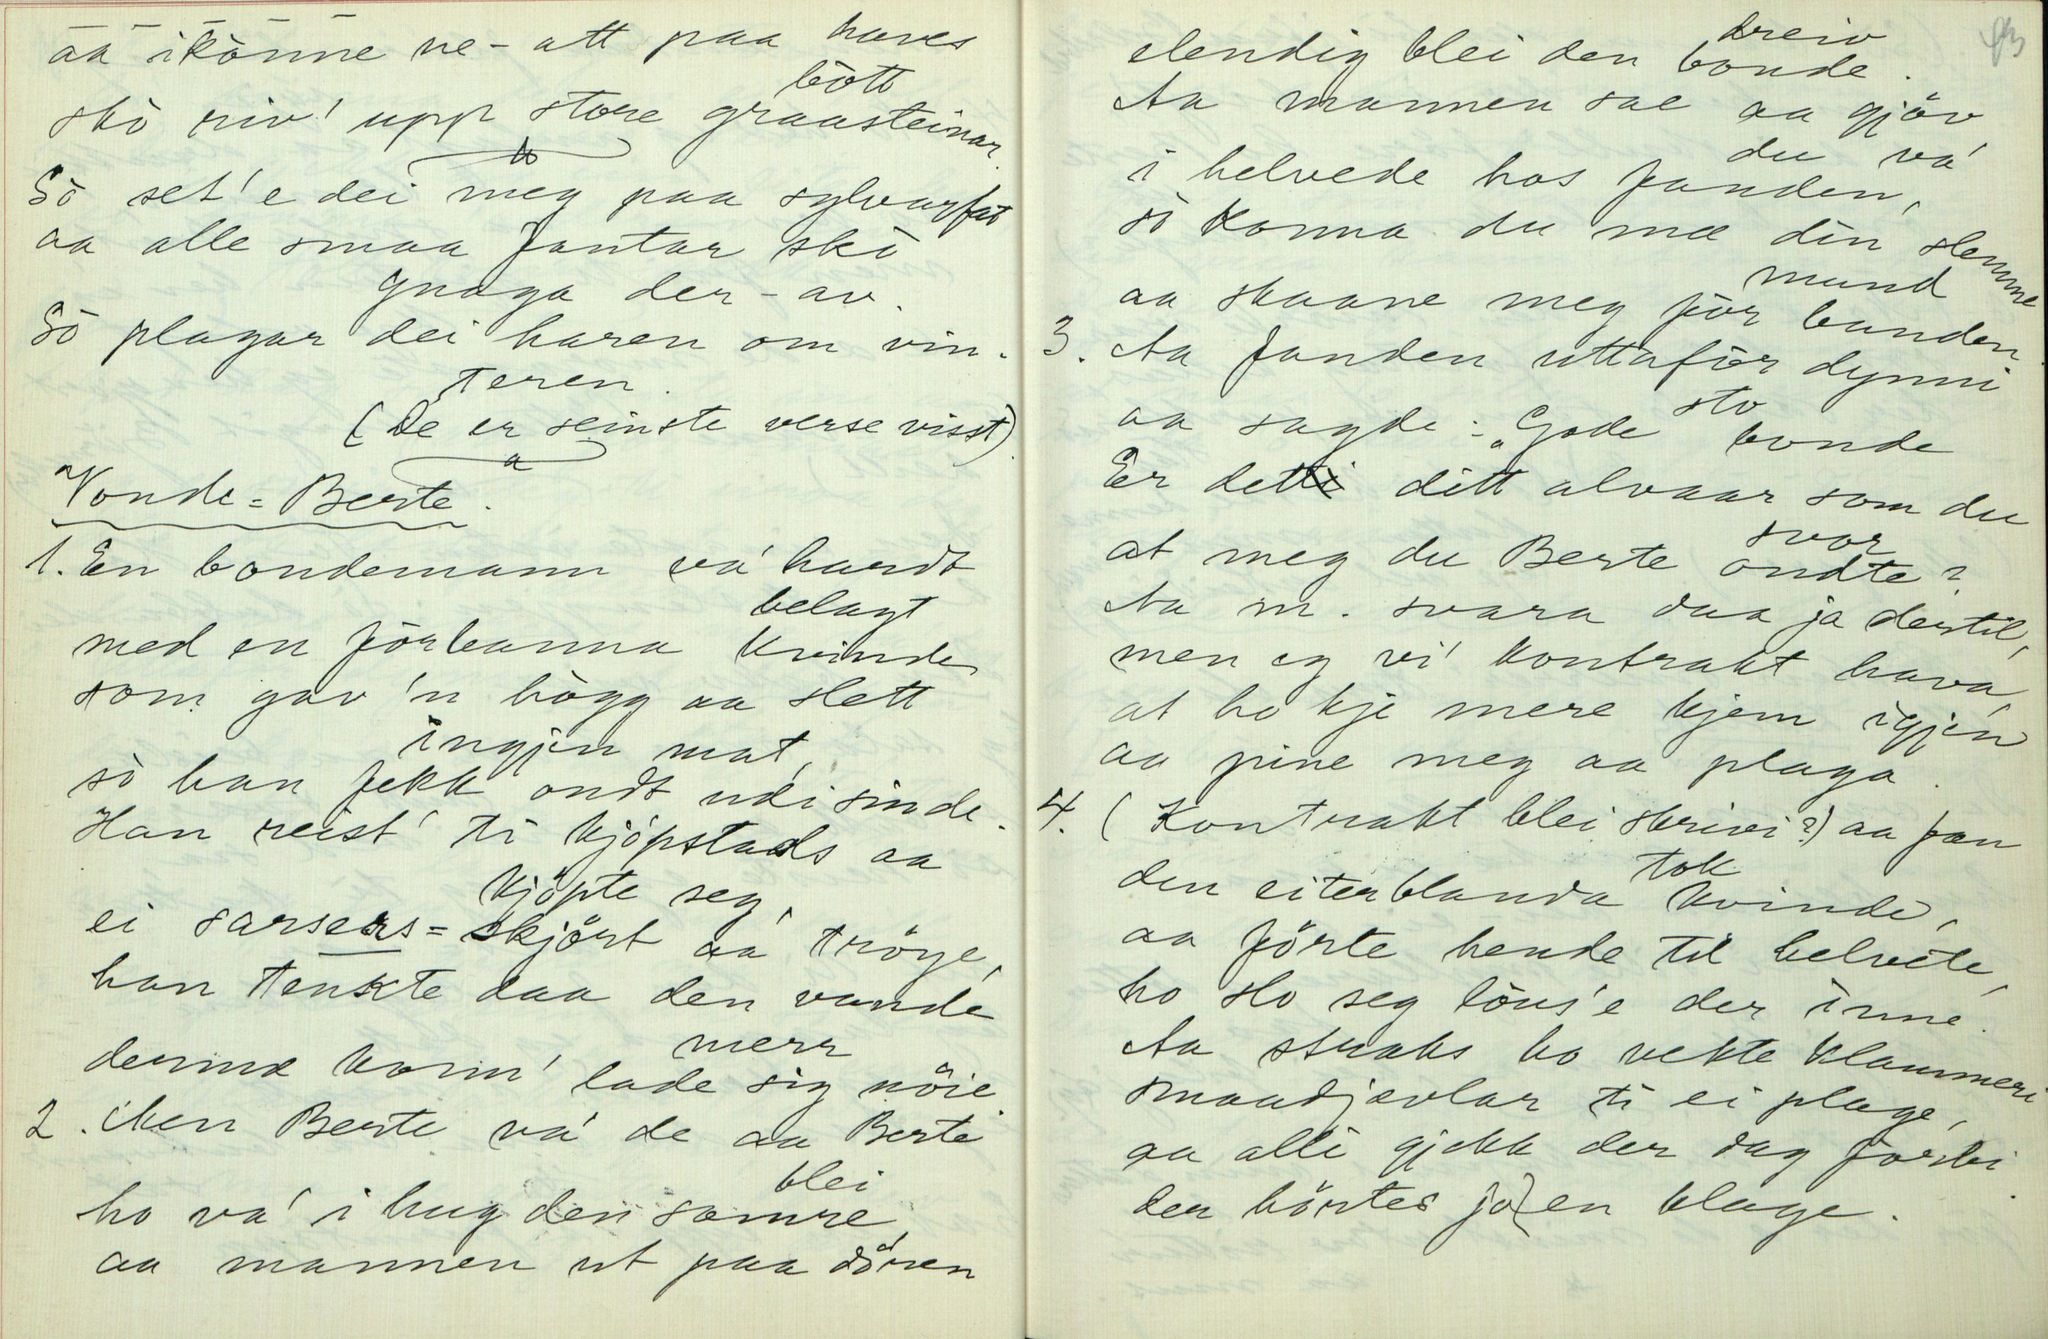 aa ikönne ne - att paa haves
bött
skö riv' upp store graasteinar.
Sö set'e dei meg paa sylvarfat
aa alle smaa fantar skö
gnaga der-av.
Sö plagar dei haren om vin-
teren.
(De er seinste verse visst).
Vonde-Berte.
1. En bondemann va' hardt
belagt
med en förbanna kvinde
som gav 'n högg aa slett
ingjen mat,
sö han fekk ondt udi sinde.
Han reist' ti kjöpstads aa
kjöpte seg,
ei sarsers-skjört aa tröye,
han tenkte daa den vonde
merr
dermæ konn' lade sig nöie.
2. Men Berte va' de aa Berte
blei
ho va' i hug den samre
aa mannen ut paa dören
93
dreiv
elendig blei den bonde.
Aa mannen sae aa gjöv
du va'
i helvede hos fanden,
sö konna du mæ din slemme
mund
aa skaane meg för banden.
3. Aa fanden uttaför dynni
sto
aa sagde: "Gode bonde
Er dett ditt alvaar som du
svor
at meg du Berte ondte?
Aa m. svara daa ja dertil,
men eg vi' kontrakt hava,
at ho kje mere kjem igjen
aa pine meg aa plaga.
4. (Kontrakt blei skrivi?) aa fan
tok
den eiterblanda kvinde,
aa förte hende til helvete,
ho slo seg löus'e der inne.
Aa straks ho vekte klammeri
smaadjevlar ti ei plage,
aa alli gjekk der dag forbi
der hörtes jo en klage.